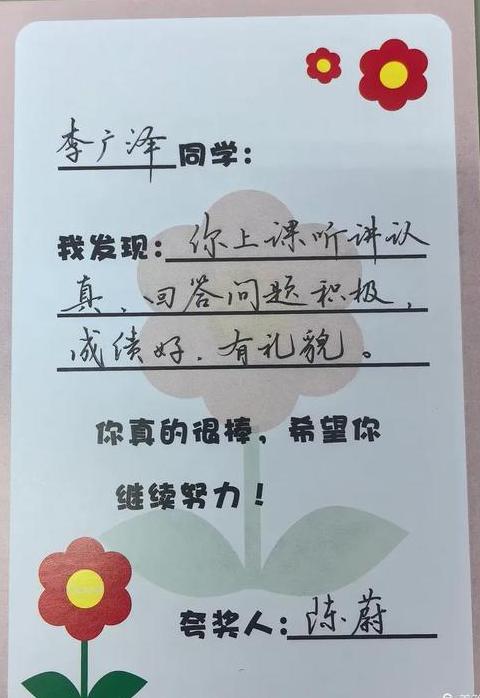 李广泽同学：
我发现：你上课听讲认
真、回答问题积极，
成绩好．有礼貌。
你真的很棒，希望你
继续努力！
夸奖人：陈蔚